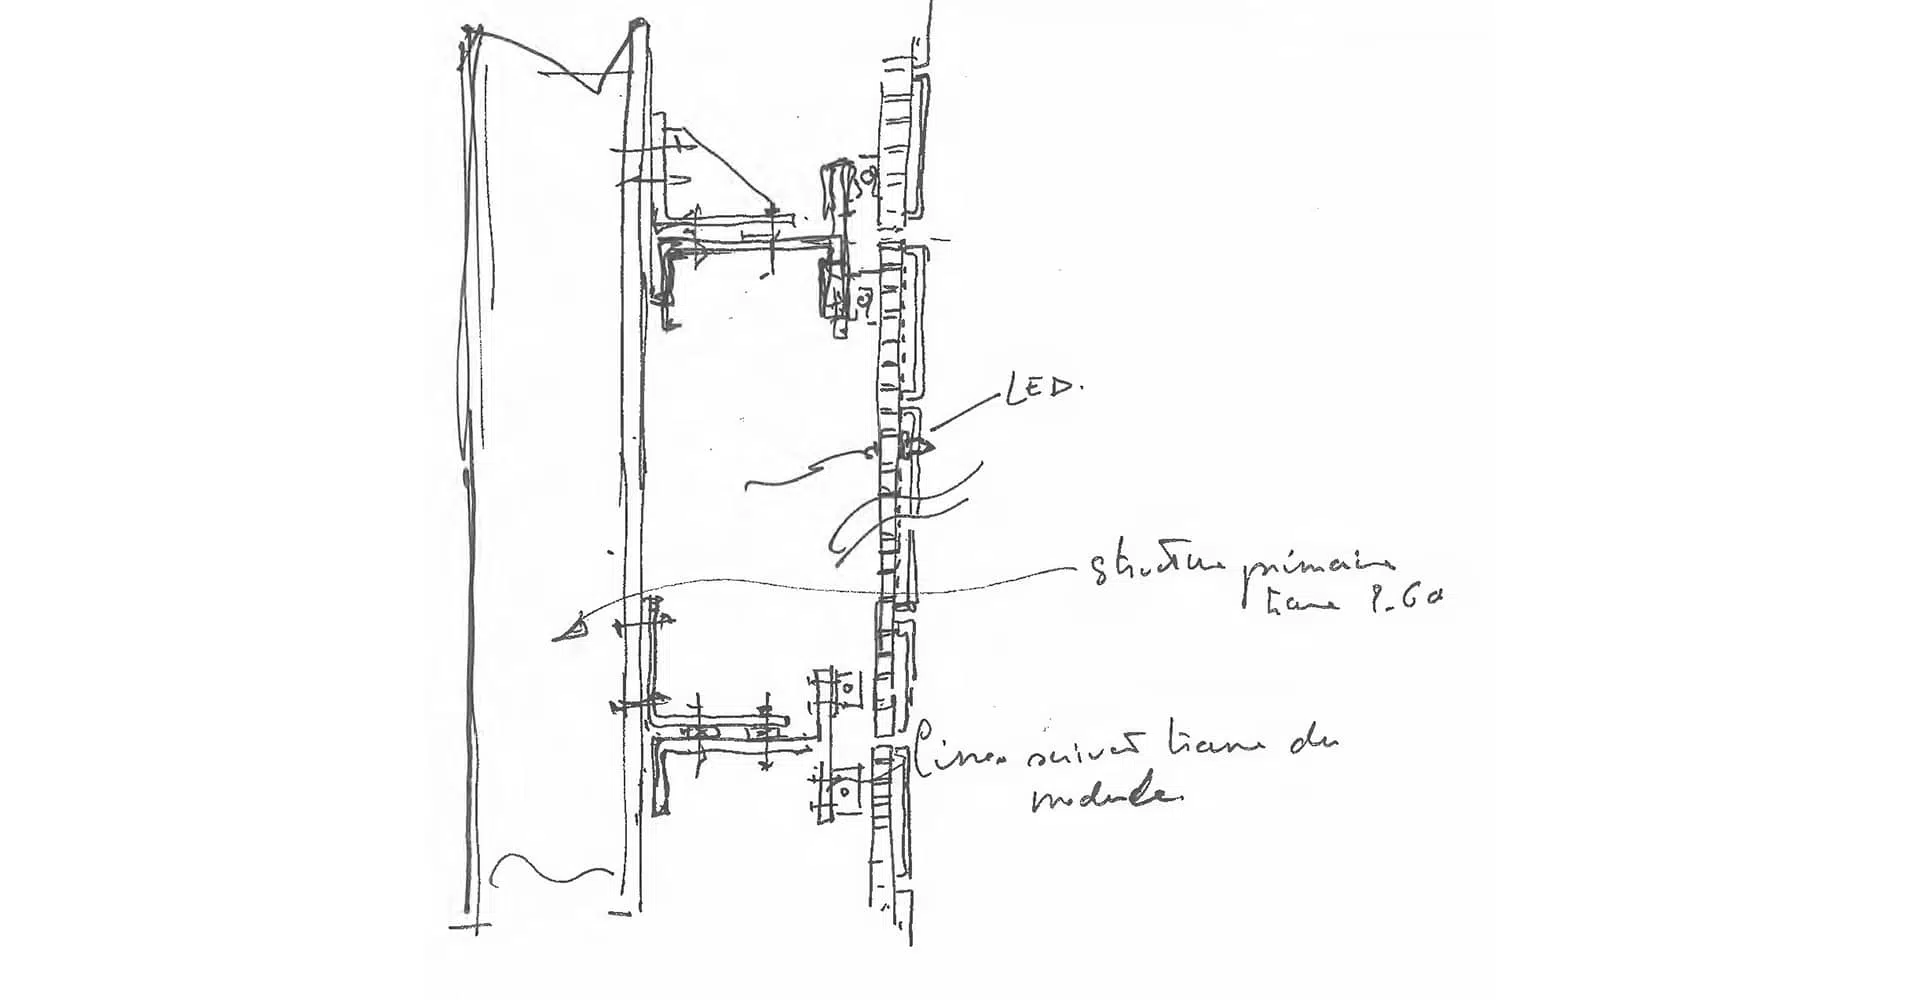 LED.
structure primaire
trame
suivant trame du
module